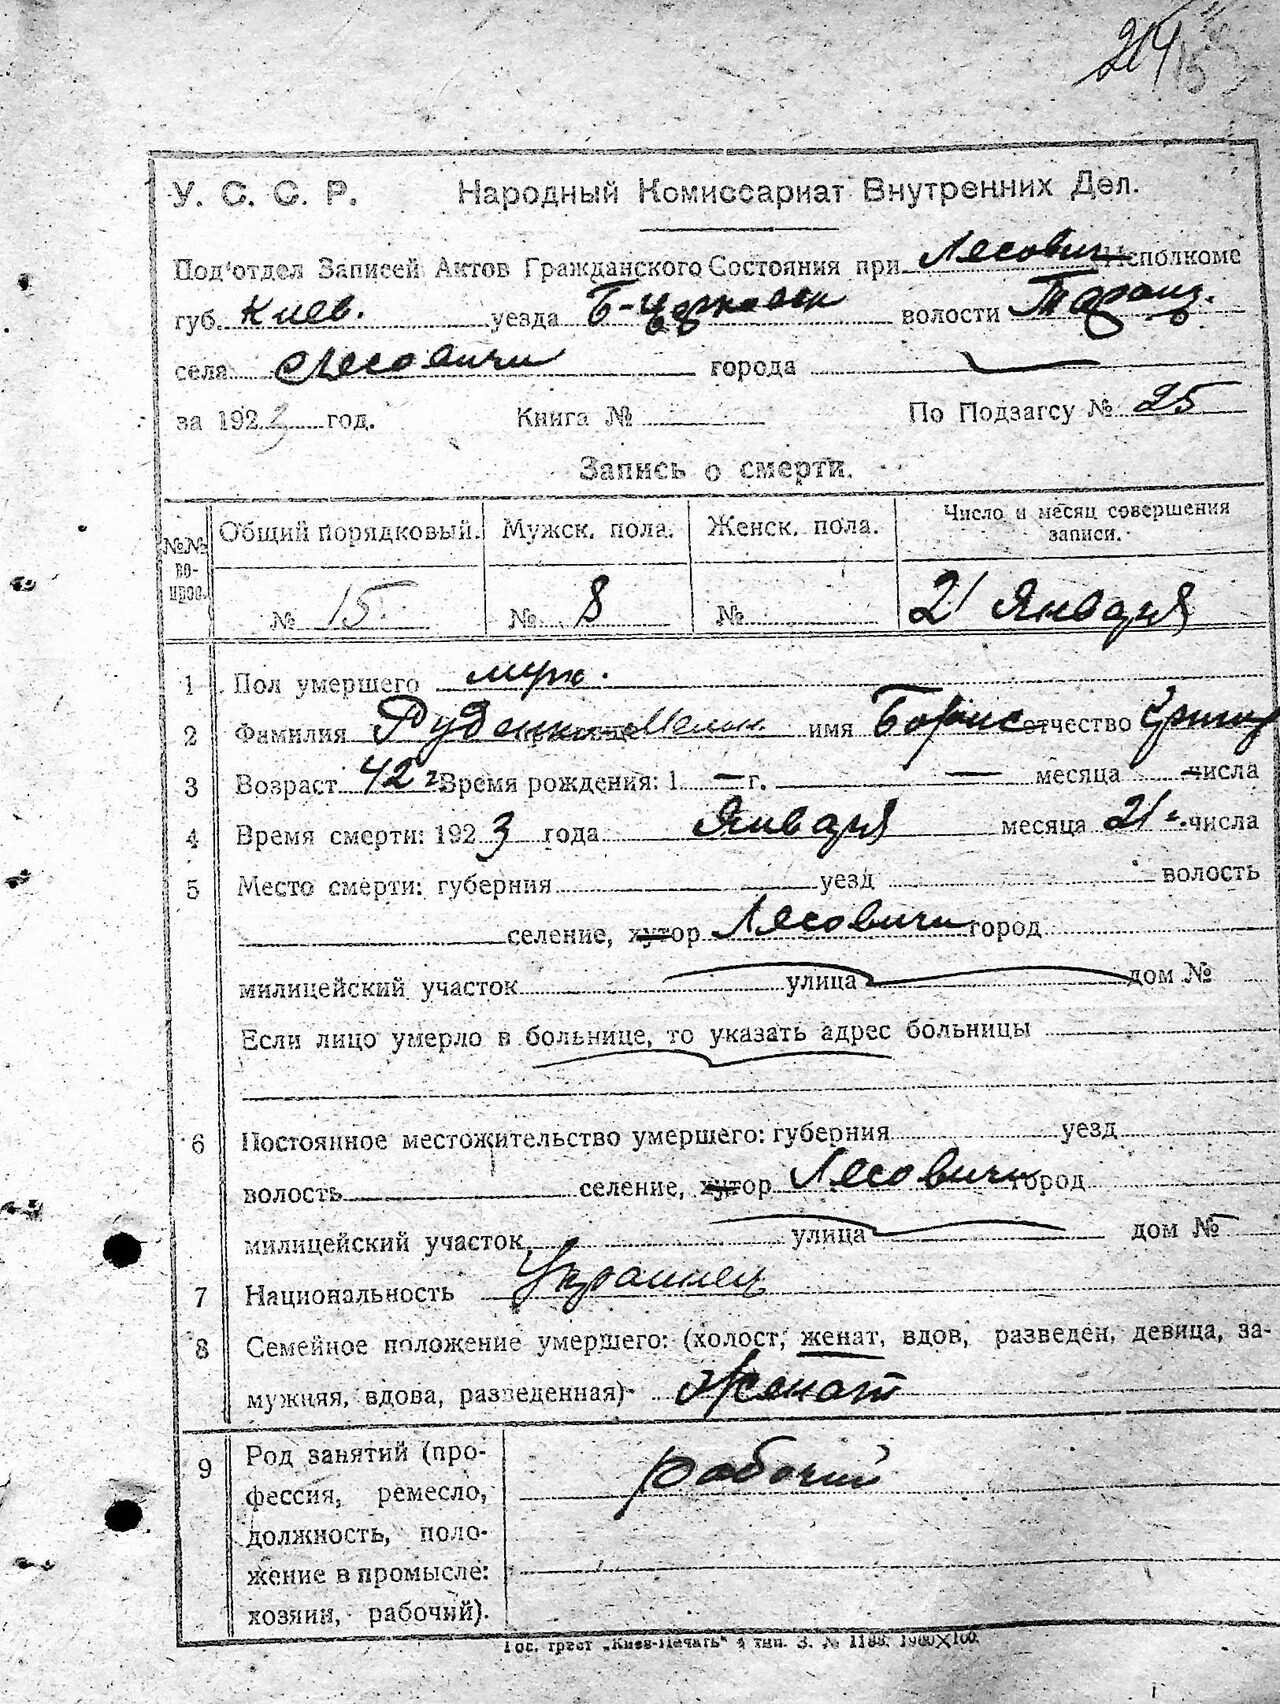 214
15
У. С. С. Р. Народный Комиссариат Внутренних Дел.
Под'отдел Записей Актов Гражданского Состояния при Лесович Исполкоме
губ. Киев. уезда Б-Церковск волости Таращ.
села Лесовичи города
за 1923 год. Книга № По Подзагсу № 25
Запись о смерти.
№№ вопрос. Общий порядковый. Мужск. пола. Женск. пола. Число и месяц совершения записи.
№ 15. № 8 № 21 Января
1 Пол умершего муж.
2 Фамилия Руденко имя Борис отчество Григор
3 Возраст 42 г Время рождения: 1 — г. — месяца — числа
4 Время смерти: 1923 года Января месяца 21 г. числа
5 Место смерти: губерния уезд волость
селение, хутор Лесовичи город
милицейский участок улица дом №
Если лицо умерло в больнице, то указать адрес больницы
6 Постоянное местожительство умершего: губерния уезд
волость селение, хутор Лесовичи город
милицейский участок улица дом №
7 Национальность Украинец
8 Семейное положение умершего: (холост, женат, вдов, разведен, девица, за-
мужняя, вдова, разведенная) Женат
9 Род занятий (про-
фессия, ремесло,
должность, поло-
жение в промысле:
хозяин, рабочий).
рабочий
Гос. трест „Киев-Печать" 4 тип. З. № 1183. 1900×100.